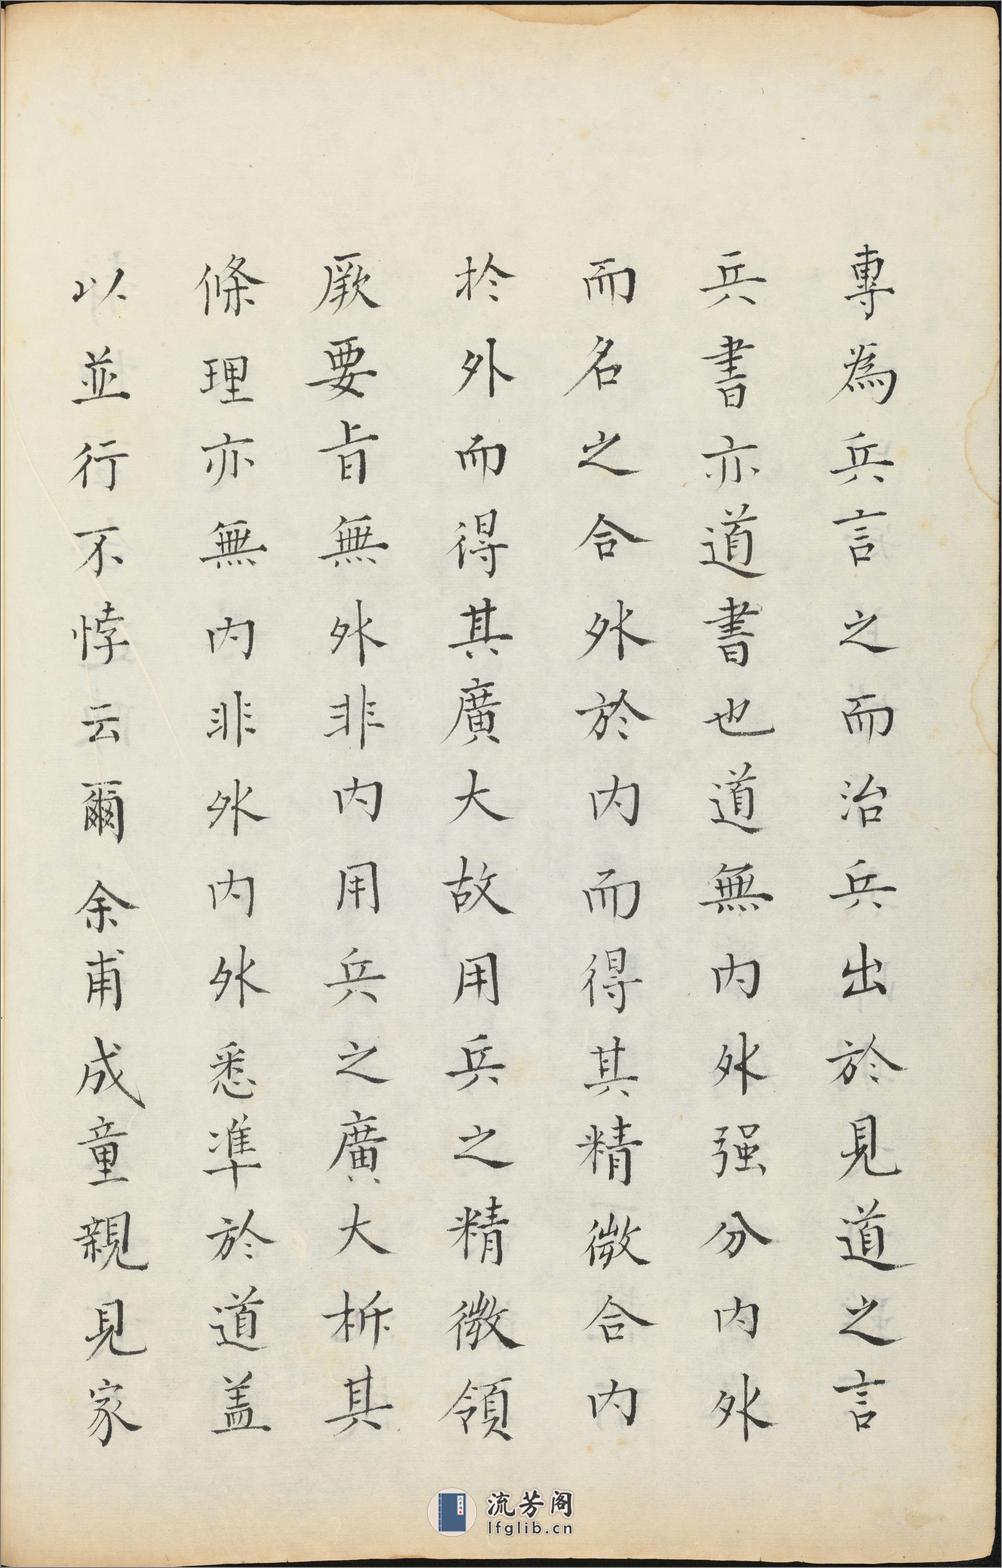 專為兵言之而治兵出於見道之言
兵書亦道書也道無内外强分内外
而名之合外於内而得其精微合内
於外而得其廣大故用兵之精微領
厥要旨無外非内用兵之廣大析其
條理亦無内非外内外悉準於道盖
以並行不悖云爾余甫成童親見家
流芳阁
lfglib.cn